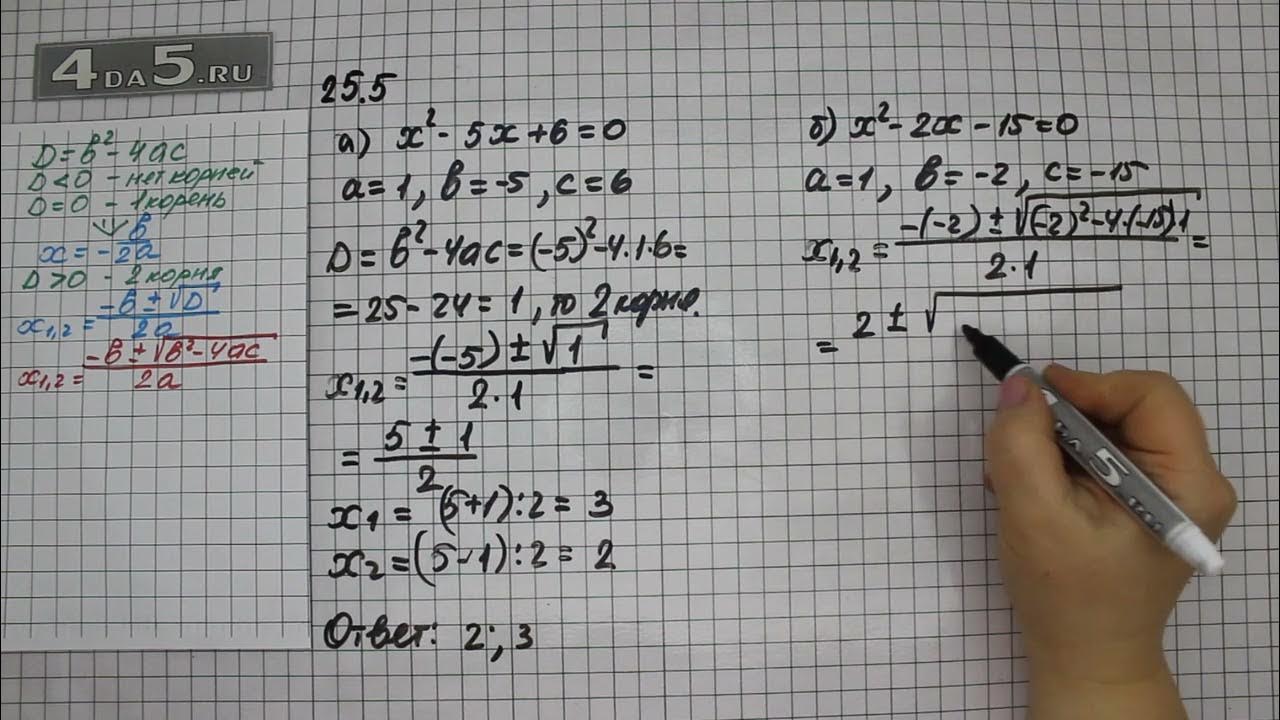 4DA5.RU
D = b² - 4ac
D < 0 - нет корней
D = 0 - 1 корень
x = -b/2a
D > 0 - 2 корня
x₁,₂ = (-b ± √D)/2a
x₁,₂ = (-b ± √(b² - 4ac))/2a
25.5
а) x² - 5x + 6 = 0
a = 1, b = -5, c = 6
D = b² - 4ac = (-5)² - 4·1·6 =
= 25 - 24 = 1, то 2 корня.
x₁,₂ = (-(-5) ± √1)/(2·1) =
= (5 ± 1)/2
x₁ = (5+1):2 = 3
x₂ = (5-1):2 = 2
Ответ: 2; 3
б) x² - 2x - 15 = 0
a = 1, b = -2, c = -15
x₁,₂ = (-(-2) ± √((-2)² - 4·(-15)·1))/(2·1) =
= 2 ± √